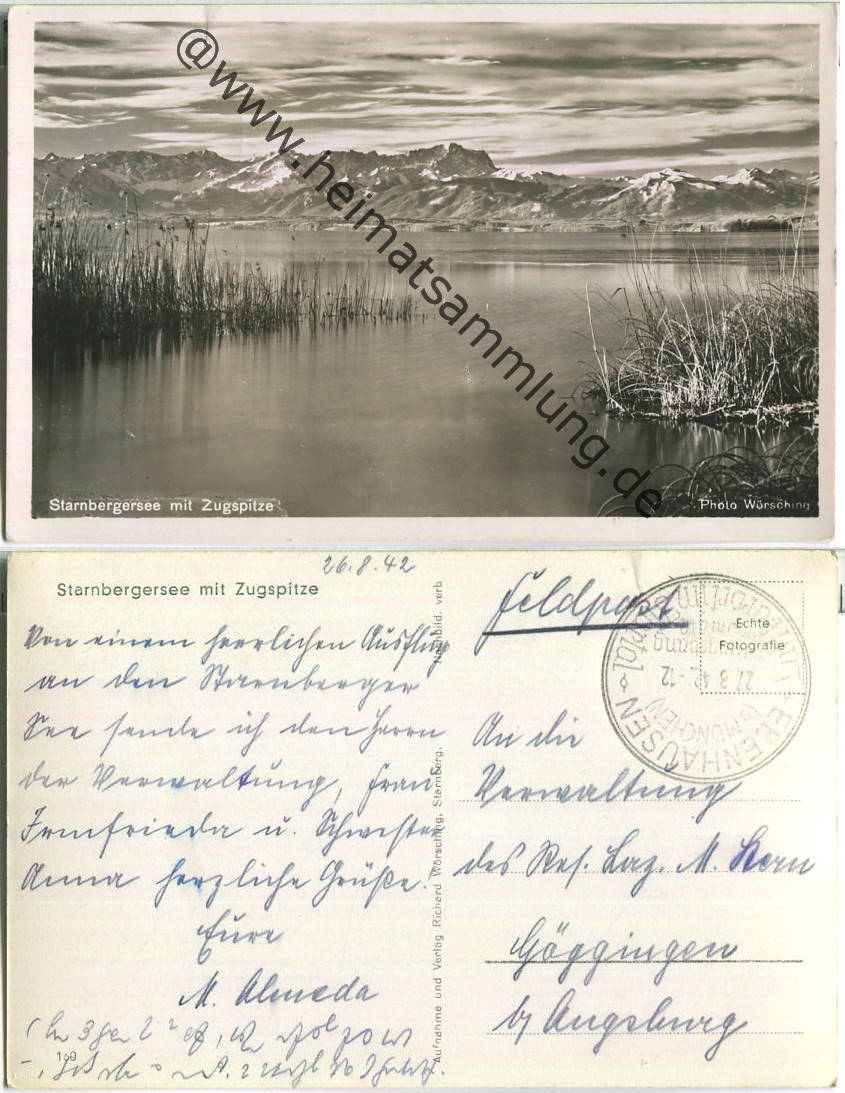 @www.heimatsammlung.de
Starnbergersee mit Zugspitze
Photo Wörsching
26.8.42
Starnbergersee mit Zugspitze
Von einem herrlichen Ausflug
an den Starnberger
See sende ich den Herren
der Verwaltung, Frau
Irmfrieda u. Schwester
Anna herzliche Grüße.
Eure
M. Almeda
160
Nachbild. verb
Aufnahme und Verlag Richard Wörsching, Starnberg.
Feldpost
Echte
Fotografie
EBENHAUSEN
(b MÜNCHEN)
27.8.42.-12
An die
Verwaltung
des Res. Laz. M. Stern
Göggingen
b/ Augsburg